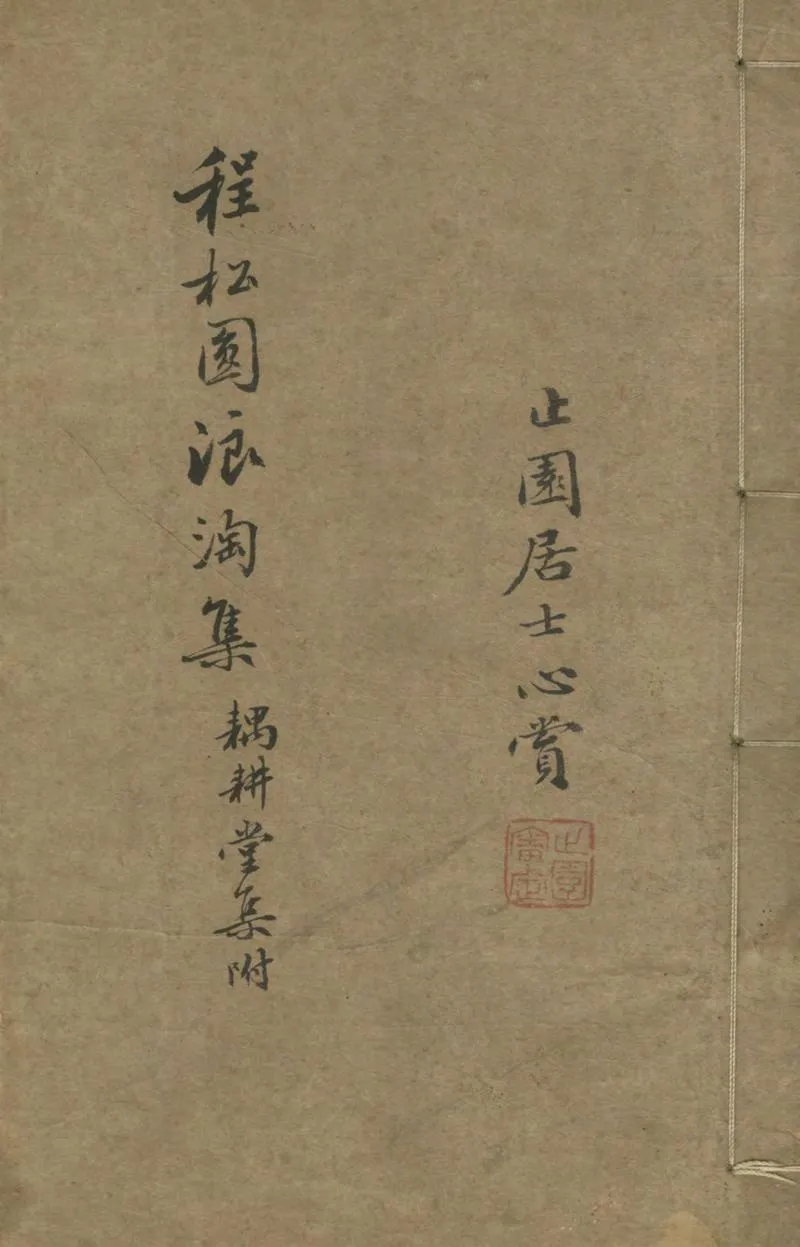 止園居士心賞
止園審定
程松圓浪淘集 耦耕堂集附